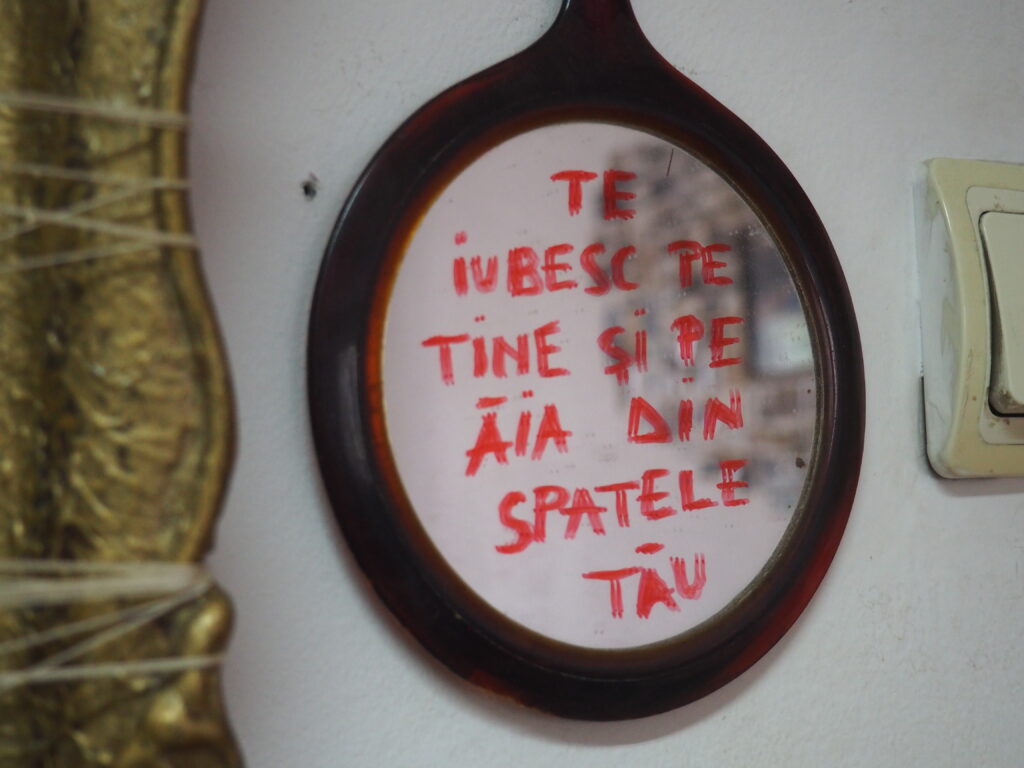 TE
IUBESC PE
TINE ȘI PE
ĂIA DIN
SPATELE
TĂU